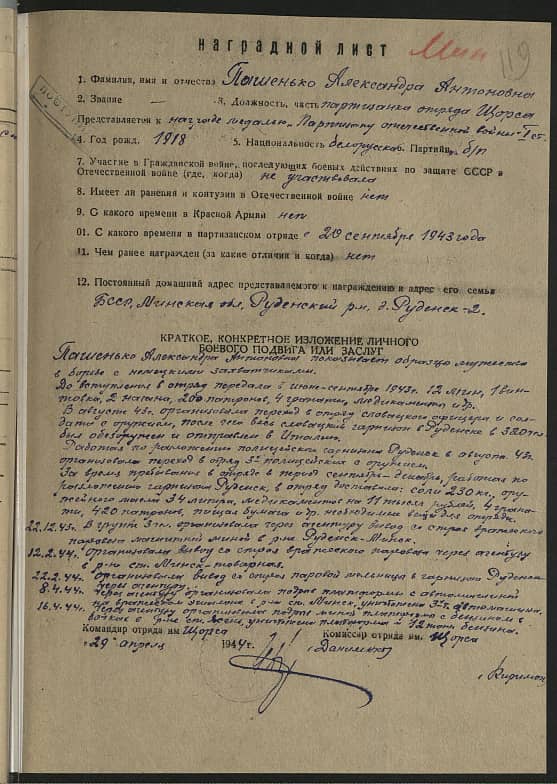 Мин
119
наградной лист
1. Фамилия, имя и отчество Пашенько Александра Антоновна
2. Звание — 3. Должность, часть партизанка отряда Щорса
Представляется к награде медалью „Партизану отечественной войны" I ст.
4. Год рожд. 1918 5. Национальность белорусска 6. Партийн. б/п
7. Участие в Гражданской войне, последующих боевых действиях по защите СССР в
Отечественной войне (где, когда) не участвовала
8. Имеет ли ранения и контузии в Отечественной войне нет
9. С какого времени в Красной Армии нет
01. С какого времени в партизанском отряде с 20 сентября 1943 года
11. Чем ранее награжден (за какие отличия и когда) нет
12. Постоянный домашний адрес представляемого к награждению и адрес его семьи
БССР, Минская обл, Руденский рн, д. Руденск-2.
КРАТКОЕ, КОНКРЕТНОЕ ИЗЛОЖЕНИЕ ЛИЧНОГО
БОЕВОГО ПОДВИГА ИЛИ ЗАСЛУГ
Пашенько Александра Антоновна показывает образцы мужества
в борьбе с немецкими захватчиками.
До вступления в отряд передала в июне-сентябре 1943г. 12 мин, 1 вин-
товка, 2 нагана, 200 патронов, 4 гранаты, медикаменты и др.
В августе 43г. организовала переход в отряд словацкого офицера и сол-
дата с оружием, после чего весь словацкий гарнизон в Руденске в 320 чел.
был обезоружен и отправлен в Италию.
Работая по разложению полицейского гарнизона Руденск в августе 43г.
организовала переход в отряд полицейских с оружием.
За время пребывания в отряде в период сентябрь-декабрь, работая по
разложению гарнизона Руденск, в отряд доставила: соли 230 кг., ору-
жейного масла 34 литра, медикаментов на 11 тысяч рублей, 4 грана-
ты, 420 патронов, пищая бумага и др. необходимые вещи для отряда.
22.12.43г. В группе 3 чел. организовала через агентуру вывод со строя вражеского
паровоза магнитной миной в р-не Руденск-Минск.
12.2.44г. Организовала вывод со строя вражеского паровоза через агентуру
в р-не ст. Минск-товарная.
22.2.44г. Организовала вывод со строя паровой мельницы в гарнизоне Руденск
через агентуру.
8.4.44г. Через агентуру организовала подрыв платформы с автомашиной
на вражеском эшелоне в р-не ст. Минск, уничтожена автомашина.
16.4.44г. Через агентуру организовала подрыв миной платформы с бензином в
бочках в р-не ст. уничтожена платформа и 12 тонн бензина.
Командир отряда им. Щорса Комиссар отряда им. Щорса
29 апрель 1944г.